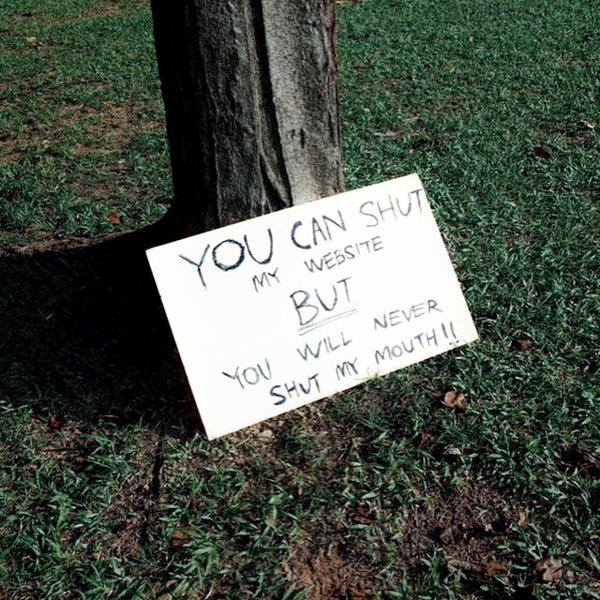 YOU CAN SHUT
MY WEBSITE
BUT
YOU WILL NEVER
SHUT MY MOUTH!!